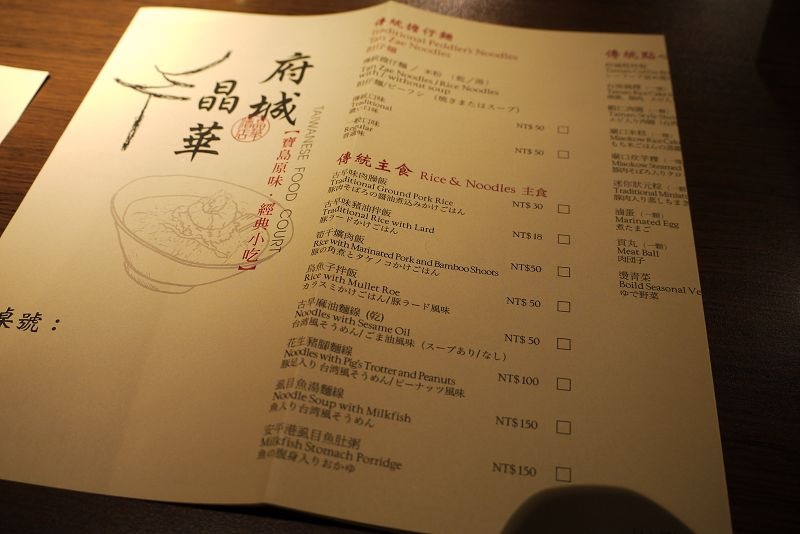 府城
晶華
TAIWANESE FOOD COURT
【寶島原味・經典小吃】
桌號：
傳統擔仔麵
Traditional Peddler's Noodles
Tan Zae Noodles
担仔麵
傳統擔仔麵／米粉（乾／湯）
Tan Zae Noodles/Rice Noodles
with / without soup
担仔麵/ビーフン（焼きまたはスープ）
傳統口味
Traditional
濃い口味
NT$ 50
一般口味
Regular
普通味
NT$ 50
傳統主食 Rice & Noodles 主食
古早味肉臊飯
Traditional Ground Pork Rice
豚肉そぼろの醤油煮込みかけごはん
NT$ 30
古早味豬油拌飯
Traditional Rice with Lard
豚ラードかけごはん
NT$18
筍干爌肉飯
Rice with Marinated Pork and Bamboo Shoots
豚の角煮とタケノコかけごはん
NT$50
烏魚子拌飯
Rice with Mullet Roe
カラスミかけごはん/豚ラード風味
NT$ 50
古早麻油麵線（乾）
Noodles with Sesame Oil
台湾風そうめん/ごま油風味（スープあり/なし）
NT$ 50
花生豬腳麵線
Noodles with Pig's Trotter and Peanuts
豚足入り台湾風そうめん/ピーナッツ風味
NT$ 100
虱目魚湯麵線
Noodle Soup with Milkfish
魚入り台湾風そうめん
NT$ 150
安平港虱目魚肚粥
Milkfish Stomach Porridge
魚の腹身入りおかゆ
NT$ 150
傳統點心
迷你狀元粽（一顆）
Traditional Miniatu
滷蛋（一顆）
Marinated Egg
煮たまご
貢丸（一顆）
Meat Ball
肉団子
燙青菜
Boild Seasonal Ve
ゆで野菜